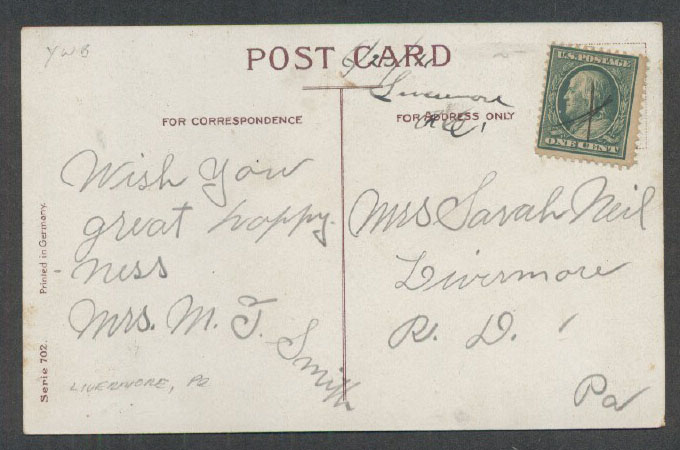 YWB
POST CARD
Livermore
Pa.
U.S. POSTAGE
ONE CENT
FOR CORRESPONDENCE
FOR ADDRESS ONLY
Wish You
great happy-
ness
Mrs. M. T.
Smith
LIVERMORE, Pa
Mrs Sarah Neil
Livermore
R. D. 1
Pa
Serie 702.
Printed in Germany.